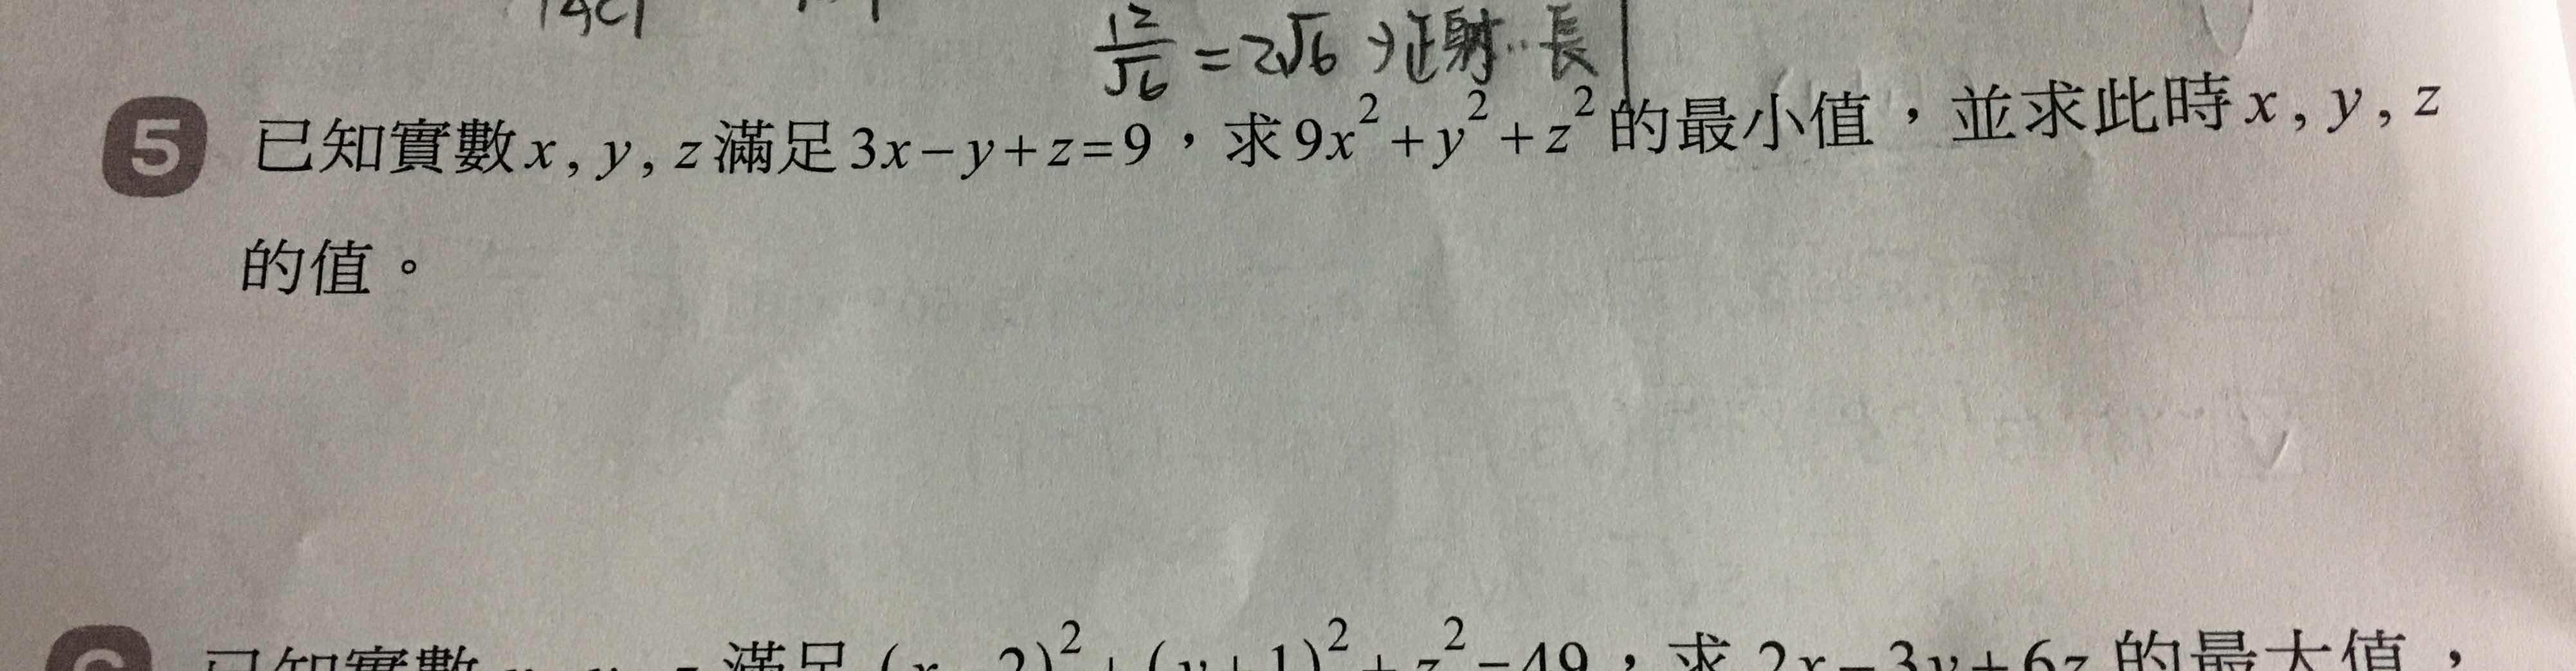 12/√6 = 2√6 → 正射⋯長
5 已知實數 x , y , z 滿足 3x − y + z = 9，求 9x² + y² + z² 的最小值，並求此時 x , y , z
的值。
6 已知實數 x , y , z 滿足 (x − 2)² + (y + 1)² + z² = 49，求 2x − 3y + 6z 的最大值，